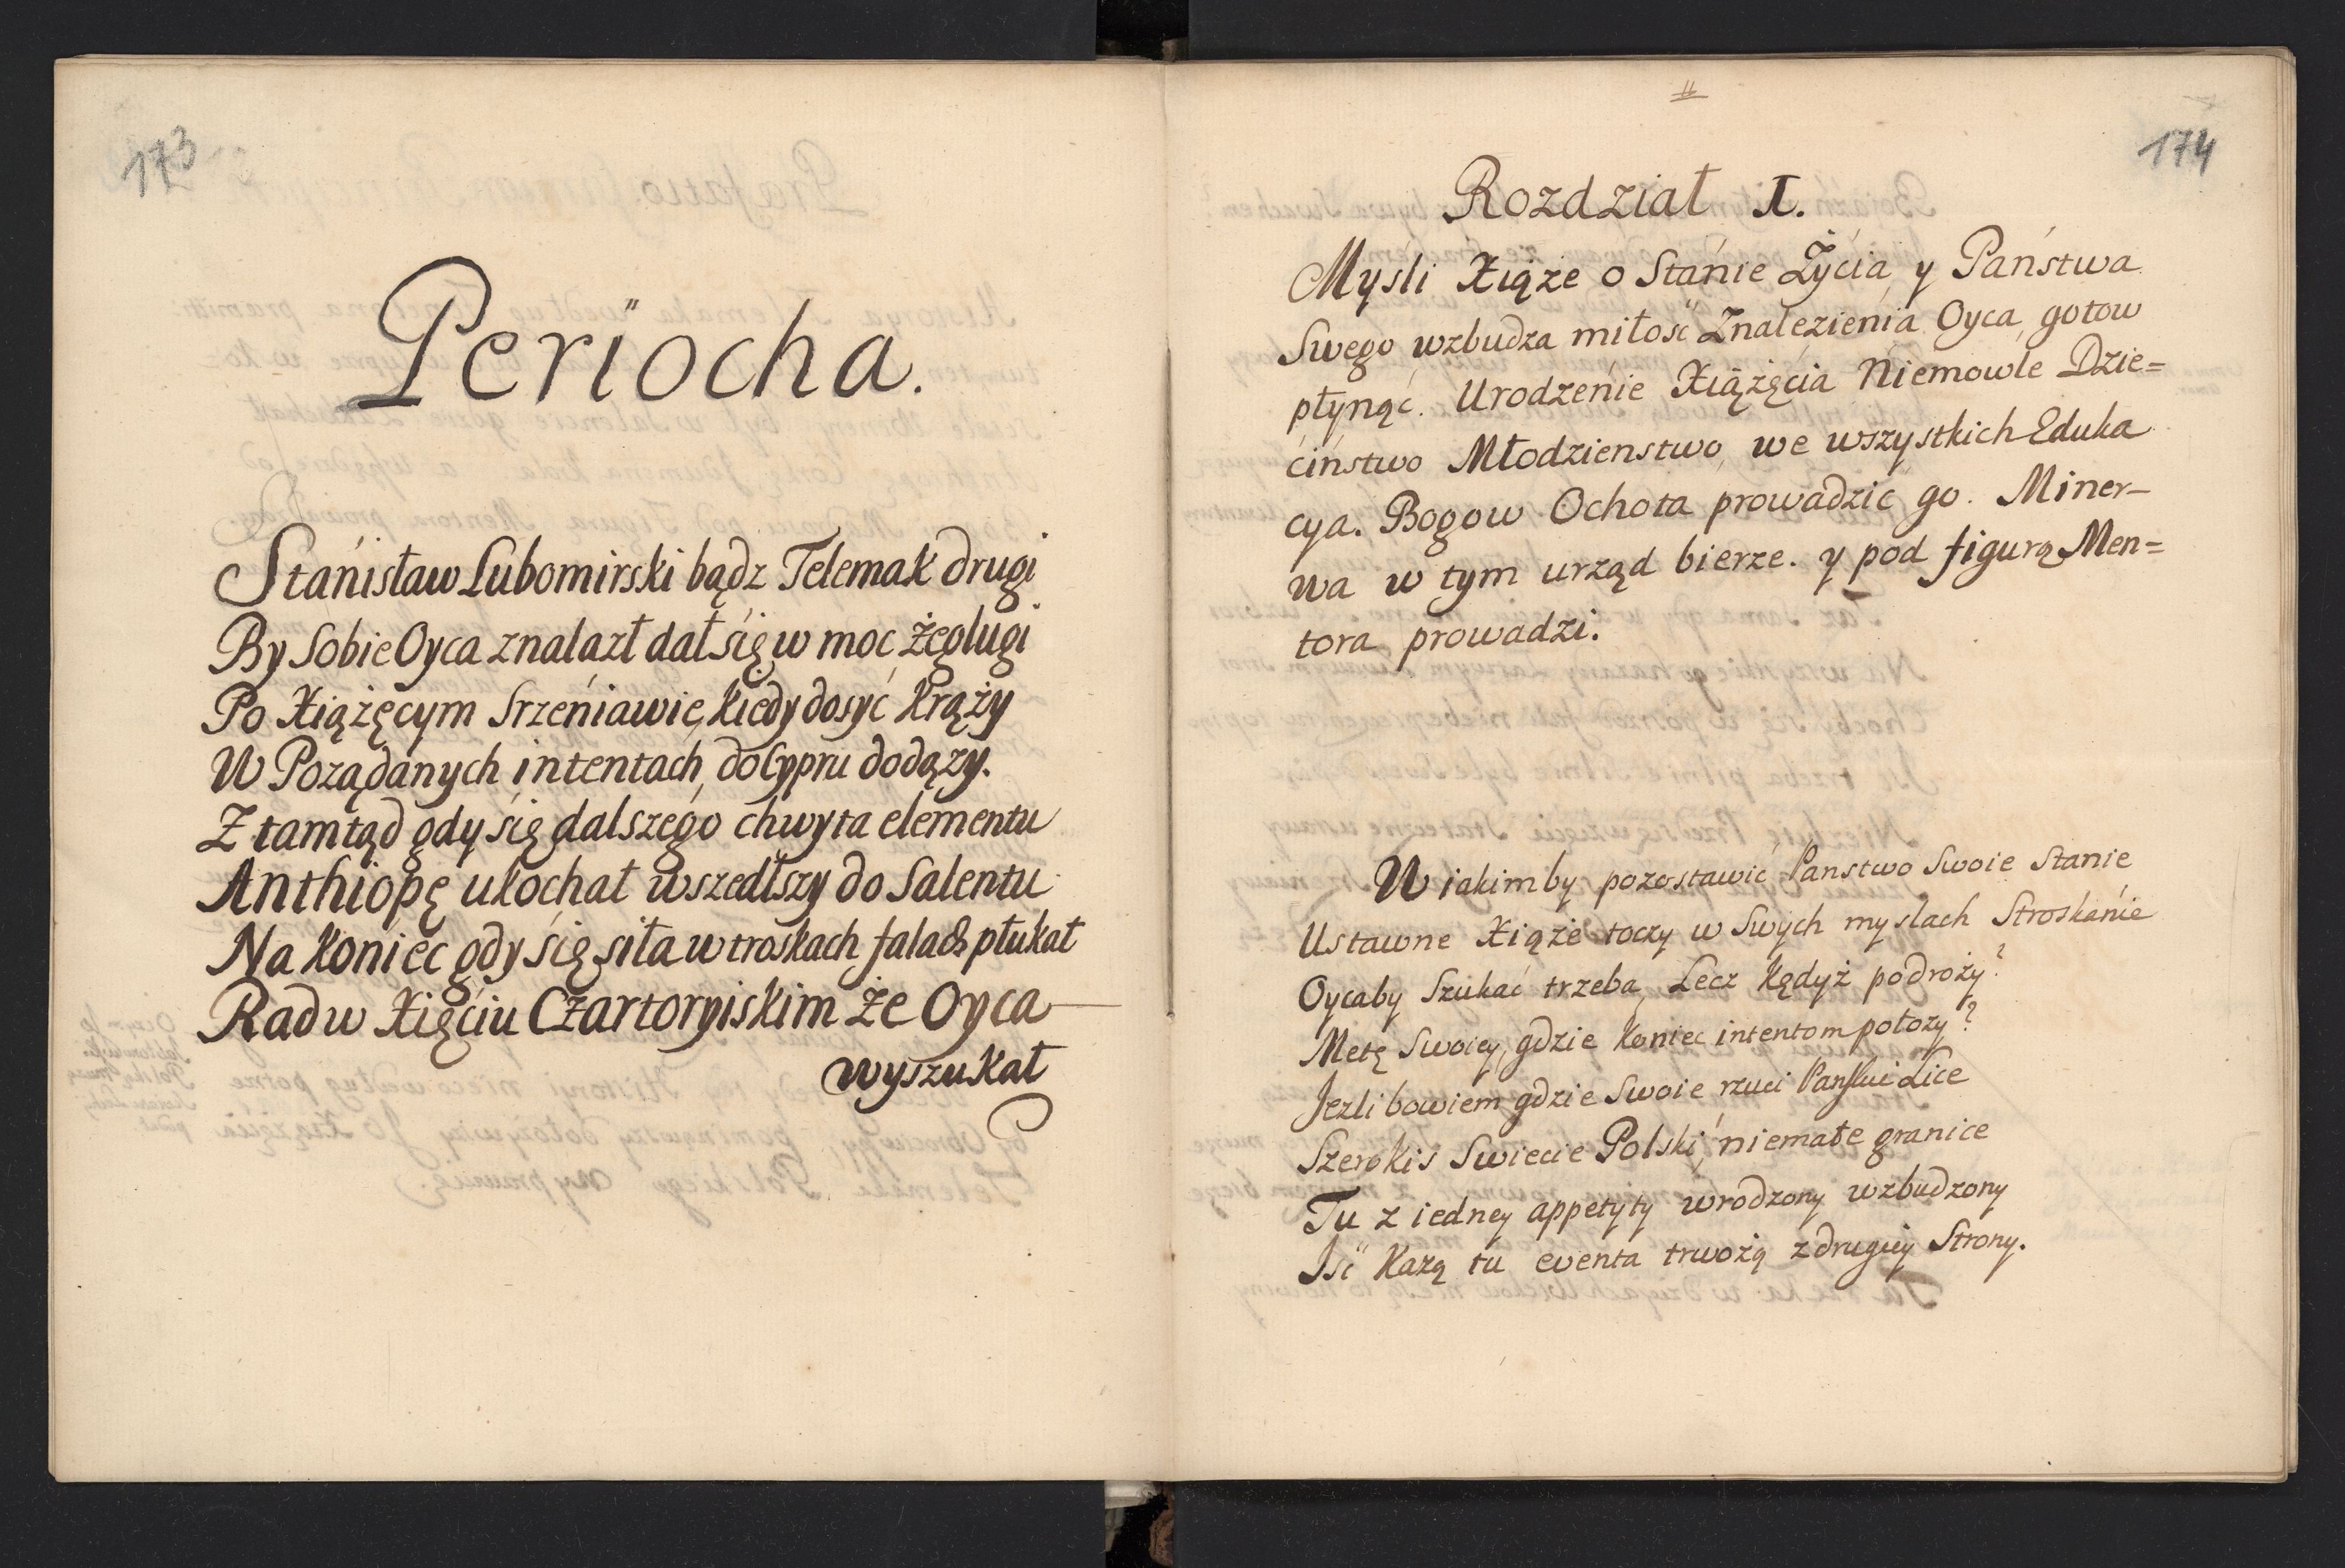 173
Periocha.
Stanisław Lubomirski bądz Telemak drugi
By Sobie Oyca znalazł dał się w moc żeglugi
Po Xiążęcym Srzeniawie, kiedy dosyć krąży
W Pożądanych intentach, do Cypru dodązy.
Z tamtąd gdy się dalszego chwyta elementu
Anthiopę ukochał wszedłszy do Salentu
Na koniec gdy się siła w troskach falach płukał
Rad w Xięciu Czartoryiskim że Oyca
wyszukał
174
Rozdział I.
Mysli Xiąże o Stanie Życia, y Państwa
Swego wzbudza miłość Znalezienia Oyca, gotow
płynąć. Urodzenie Xiążęcia Niemowle Dzie=
ciństwo Młodzienstwo, we wszystkich Eduka
cya. Bogow Ochota prowadzić go. Miner-
wa w tym urząd bierze. y pod figurą Men=
tora prowadzi.
W iakimby pozostawić Panstwo Swoie Stanie
Ustawne Xiąże toczy w Swych myslach Stroskanie
Oycaby Szukać trzeba, Lecz kędyż podroży?
Metę Swoiey, gdzie koniec intentom położy?
Jezli bowiem gdzie Swoie rzuci Pański Lice
Szerokis Swiecie Polski, niemałe granice
Tu z iedney appetyty wrodzony wzbudzony
Iść każą tu eventa trwożą z drugiey Strony.